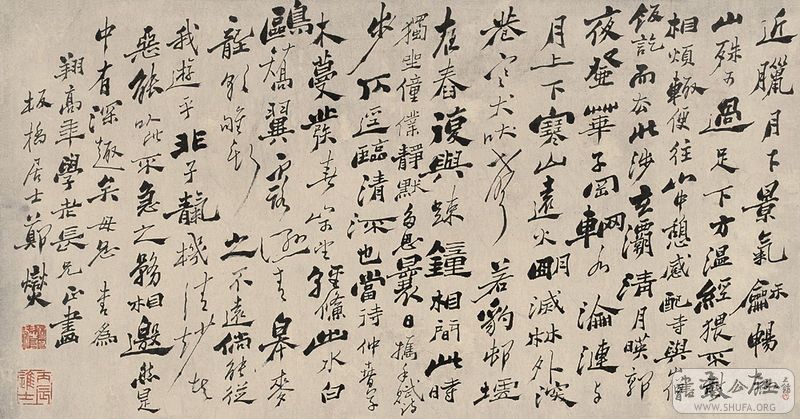 近臘月下景氣龢暢
山殊可過足下方溫經猥不
相煩輒便往山中憩感配寺與山僧
飯訖而去北涉玄灞清月映郭
夜登華子岡輞水淪漣與
月上下寒山遠火明滅林外深
巷寒犬吠聲若豹邨墟
夜舂復與疎鐘相間此時
獨坐僮僕靜默多思曩日攜手賦詩
步仄逕臨清流也當待仲春草
木蔓發春山可望輕鯈出水白
鷗矯翼露濕青皋麥
隴朝雊斯之不遠倘能從
我遊乎非子靈機清妙者
惡能以此不急之務相邀然是
中有深趣矣毋忽書為
翔高年學老長兄正畫
板橋居士鄭燮
WWW.SHUFA.ORG